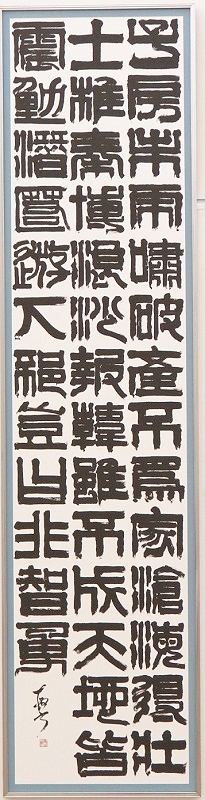 子房未虎嘯破產不爲家滄海得壯
士椎秦博浪沙報韓雖不成天地皆
震動潛匿遊下邳豈曰非智勇